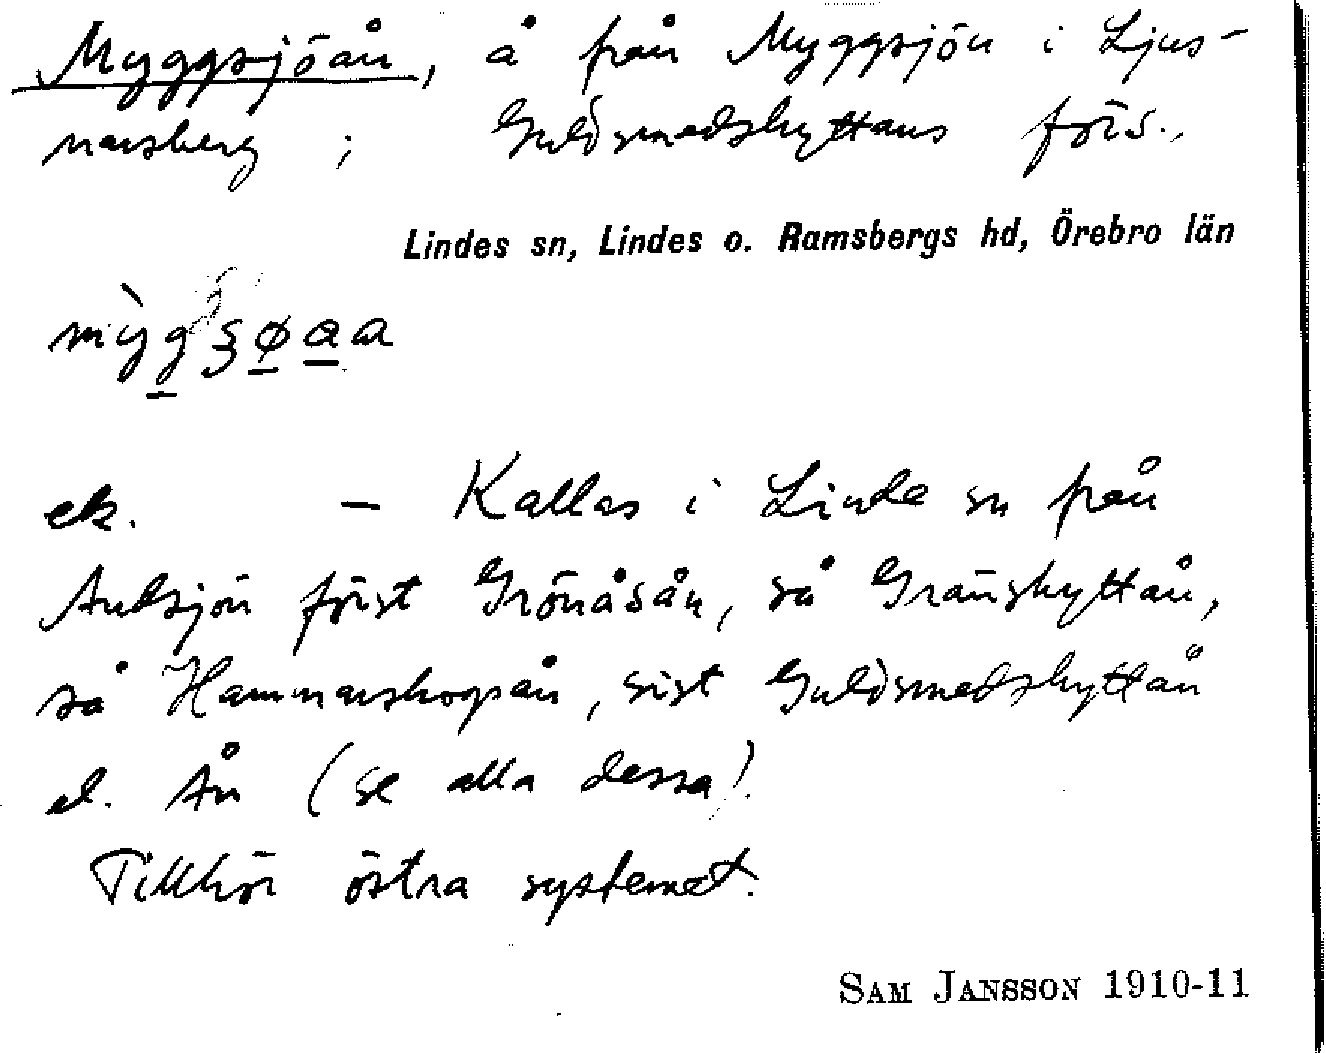 Myggsjöån, å från Myggsjön i Ljus-
narsberg ; Guldsmedshyttans förs.,
Lindes sn, Lindes o. Ramsbergs hd, Örebro län
ek. — Kallas i Linde sn från
Andsjön först Grönåsån, så Gränshyttån,
så Hammarskogsån, sist Guldsmedshyttån
el. Ån (se alla dessa).
Tillhör östra systemet.
SAM JANSSON 1910-11